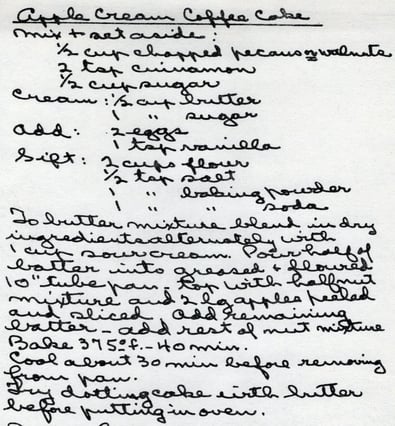 Apple Cream Coffee Cake
Mix + set aside:
1/2 cup chopped pecans or walnuts
2 tsp cinnamon
1/2 cup sugar
Cream: 1/2 cup butter
1 " sugar
Add: 2 eggs
1 tsp vanilla
Sift: 2 cups flour
1/2 tsp salt
1 " baking powder
1 " " soda
To butter mixture blend in dry
ingredients alternately with
1 cup sour cream. Pour half of
batter into greased & floured
10" tube pan - top with half nut
mixture and 2 lg apples peeled
and sliced Add remaining
batter - add rest of nut mixture
Bake 375° f. - 40 min.
Cool about 30 min before removing
from pan.
Try dotting cake with butter
before putting in oven.